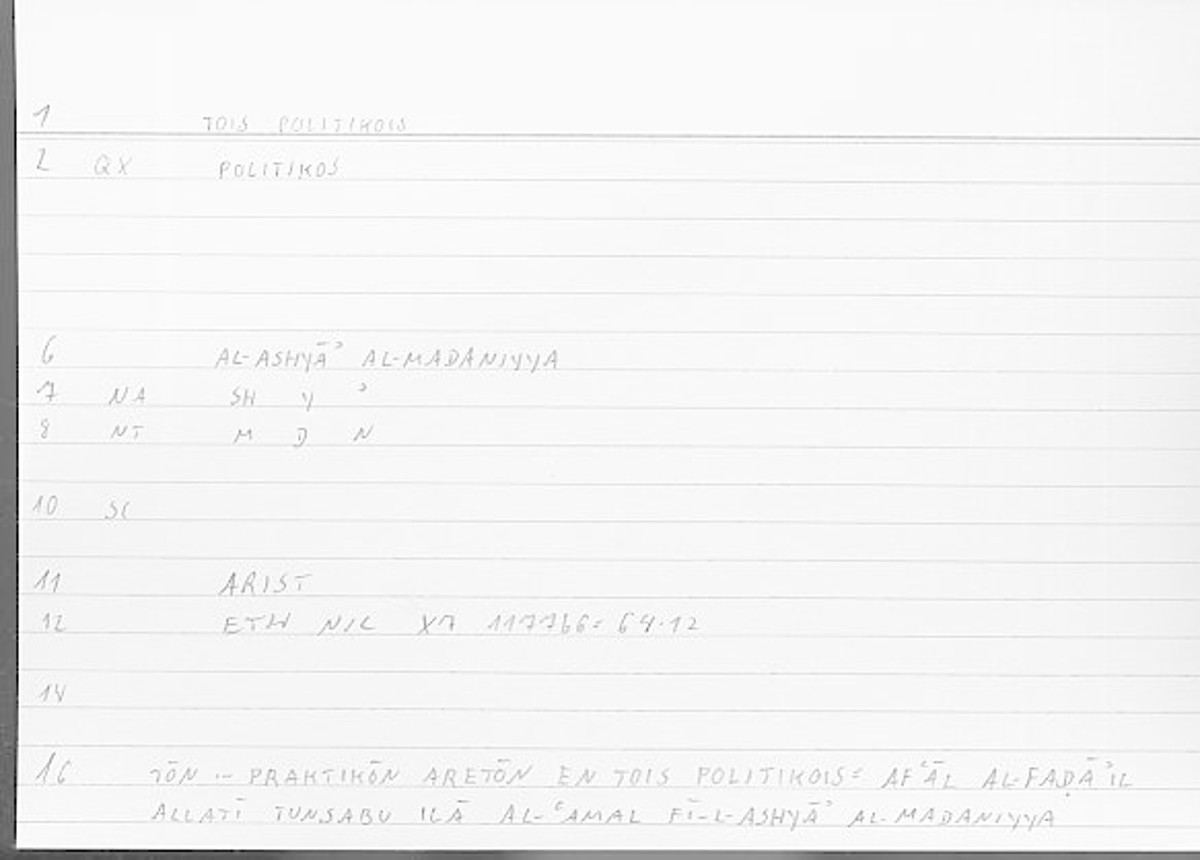 1 TOIS POLITIKOIS
2 QX POLITIKOS
6 AL-ASHYĀʾ AL-MADANIYYA
7 NA SH Y ʾ
8 NT M D N
10 SC
11 ARIST
12 ETH NIC X7 1177b6= 64.12
14
16 TŌN ... PRAKTIKŌN ARETŌN EN TOIS POLITIKOIS= AFʿĀL AL-FAḌĀʾIL
ALLATĪ TUNSABU ILĀ AL-ʿAMAL FĪ-L-ASHYĀʾ AL-MADANIYYA